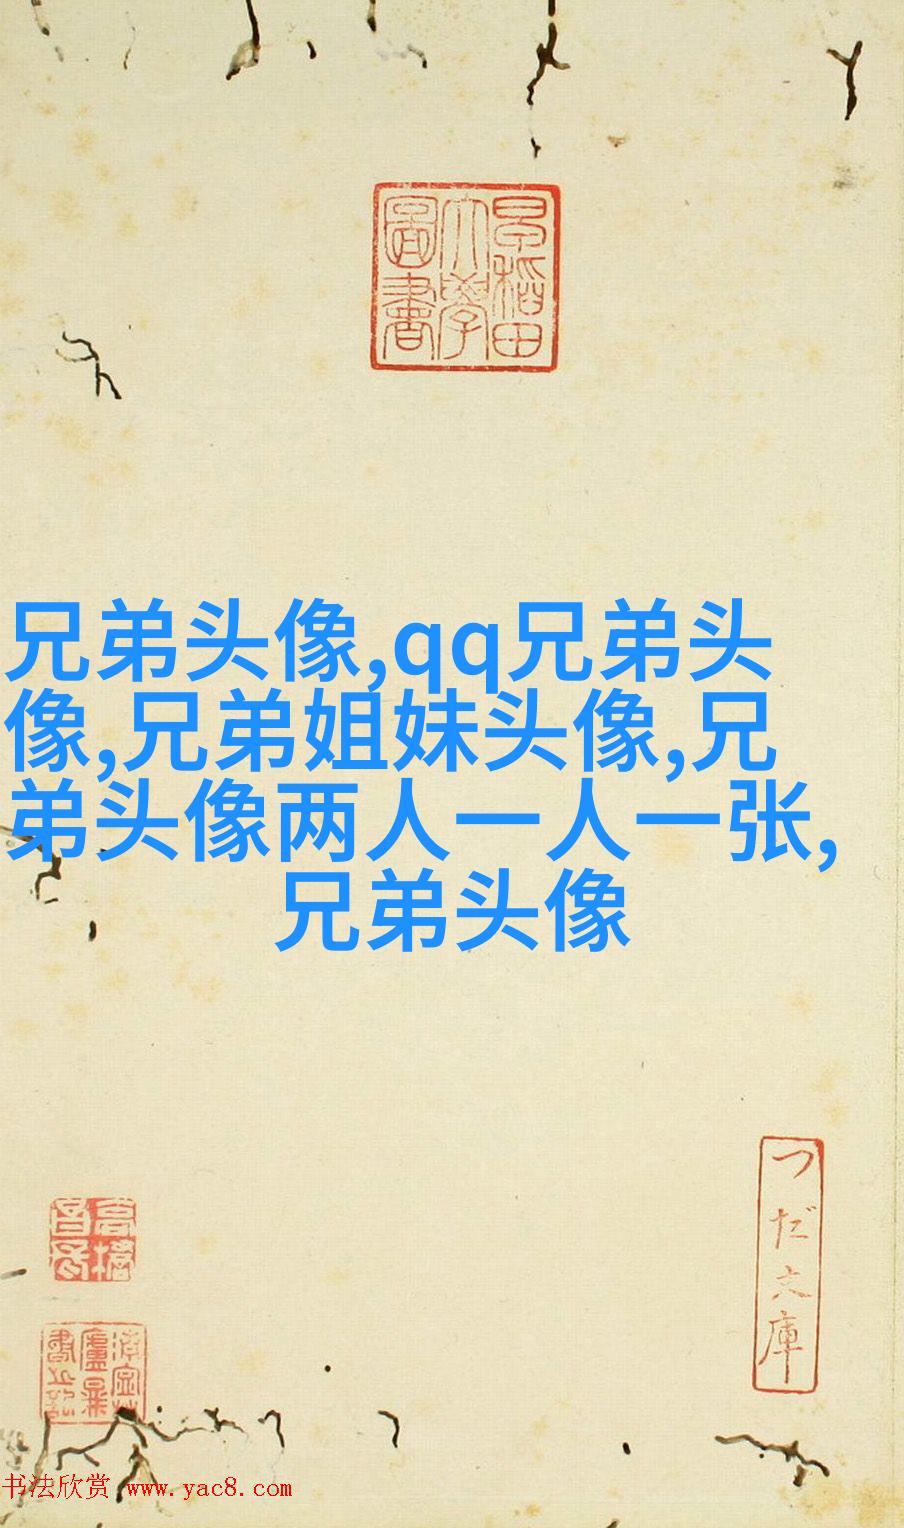 早稻田
大學
圖書
兄弟头像,qq兄弟头
像,兄弟姐妹头像,兄
弟头像两人一人一张,
兄弟头像
つだ文庫
书法欣赏 www.yac8.com